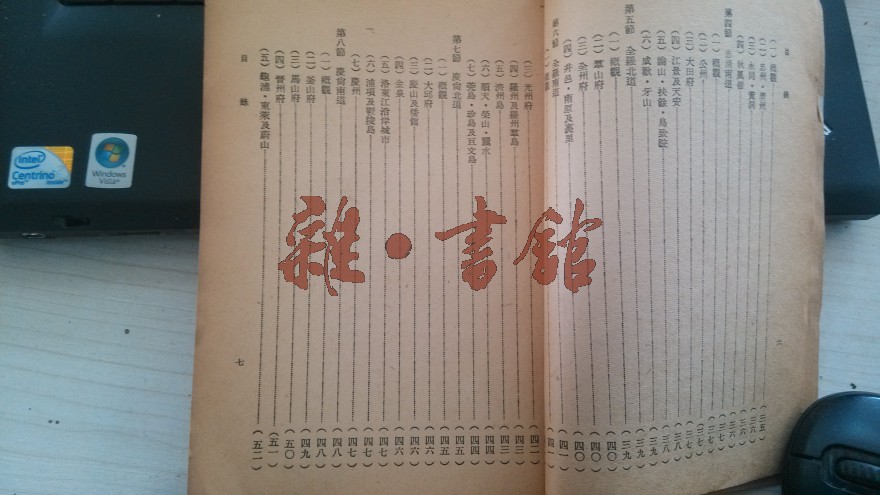 目錄
(一)概觀(三五)
(二)忠州・清州(三六)
(三)永同・黃澗(三六)
(四)秋風嶺(三六)
第四節 忠清南道(三七)
(一)概觀(三七)
(二)公州(三七)
(三)大田府(三八)
(四)江景及天安(三八)
(五)論山・扶餘・鳥致院(三九)
(六)成歡・牙山(三九)
第五節 全羅北道(三九)
(一)概觀(四〇)
(二)羣山府(四〇)
(三)全州府(四〇)
(四)井邑・南原及高敞(四一)
第六節 全羅南道(四一)
六
(三)光州府(四二)
(四)羅州及羅州羣島(四三)
(五)濟州島(四三)
(六)順天・榮山・麗水(四四)
(七)莞島・珍島及巨文島(四四)
第七節 慶尚北道(四五)
(一)概觀(四五)
(二)大邱府(四六)
(三)慶山及倭館(四六)
(四)金泉(四六)
(五)洛東江沿岸城市(四七)
(六)浦項及鬱陵島(四七)
(七)慶州(四七)
第八節 慶尚南道(四八)
(一)概觀(四八)
(二)釜山府(四九)
(三)馬山府(五〇)
(四)晉州府(五一)
(五)龜浦・東萊及蔚山(五二)
目錄
七
雜・書館
intel
Centrino
inside
Windows
Vista